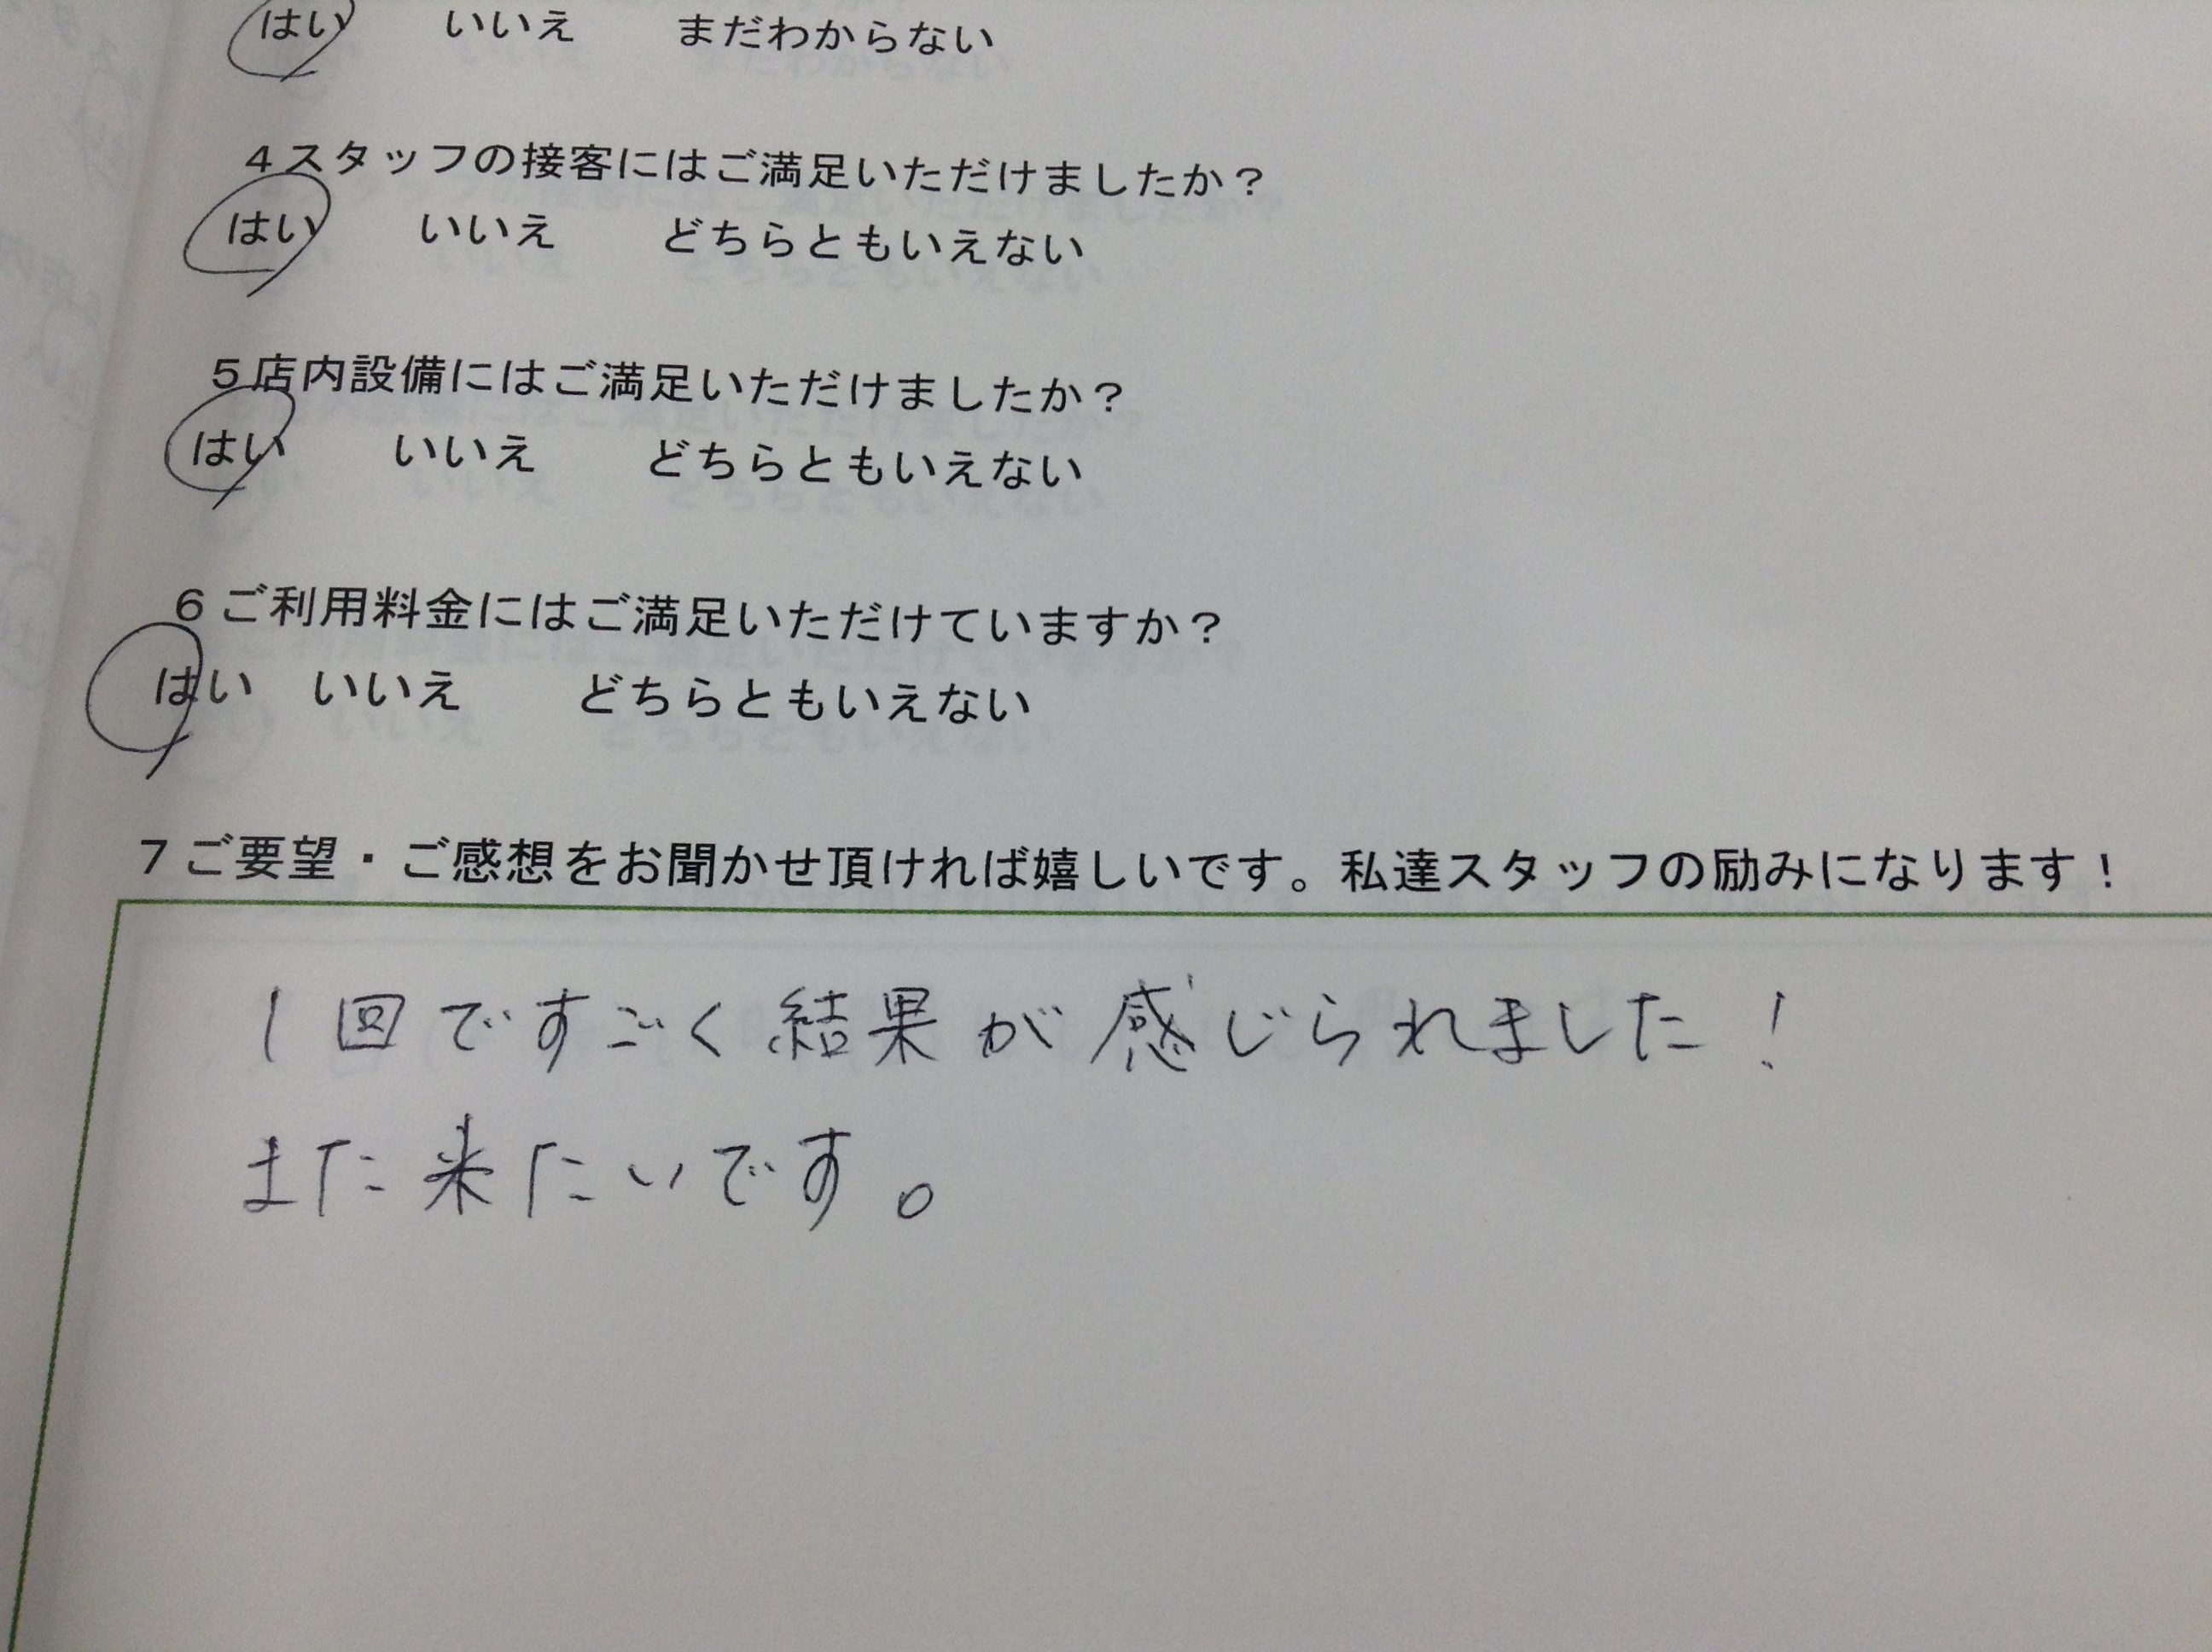 はい いいえ まだわからない
4スタッフの接客にはご満足いただけましたか？
はい いいえ どちらともいえない
5店内設備にはご満足いただけましたか？
はい いいえ どちらともいえない
6ご利用料金にはご満足いただけていますか？
はい いいえ どちらともいえない
7ご要望・ご感想をお聞かせ頂ければ嬉しいです。私達スタッフの励みになります！
1回ですごく結果が感じられました！
また来たいです。